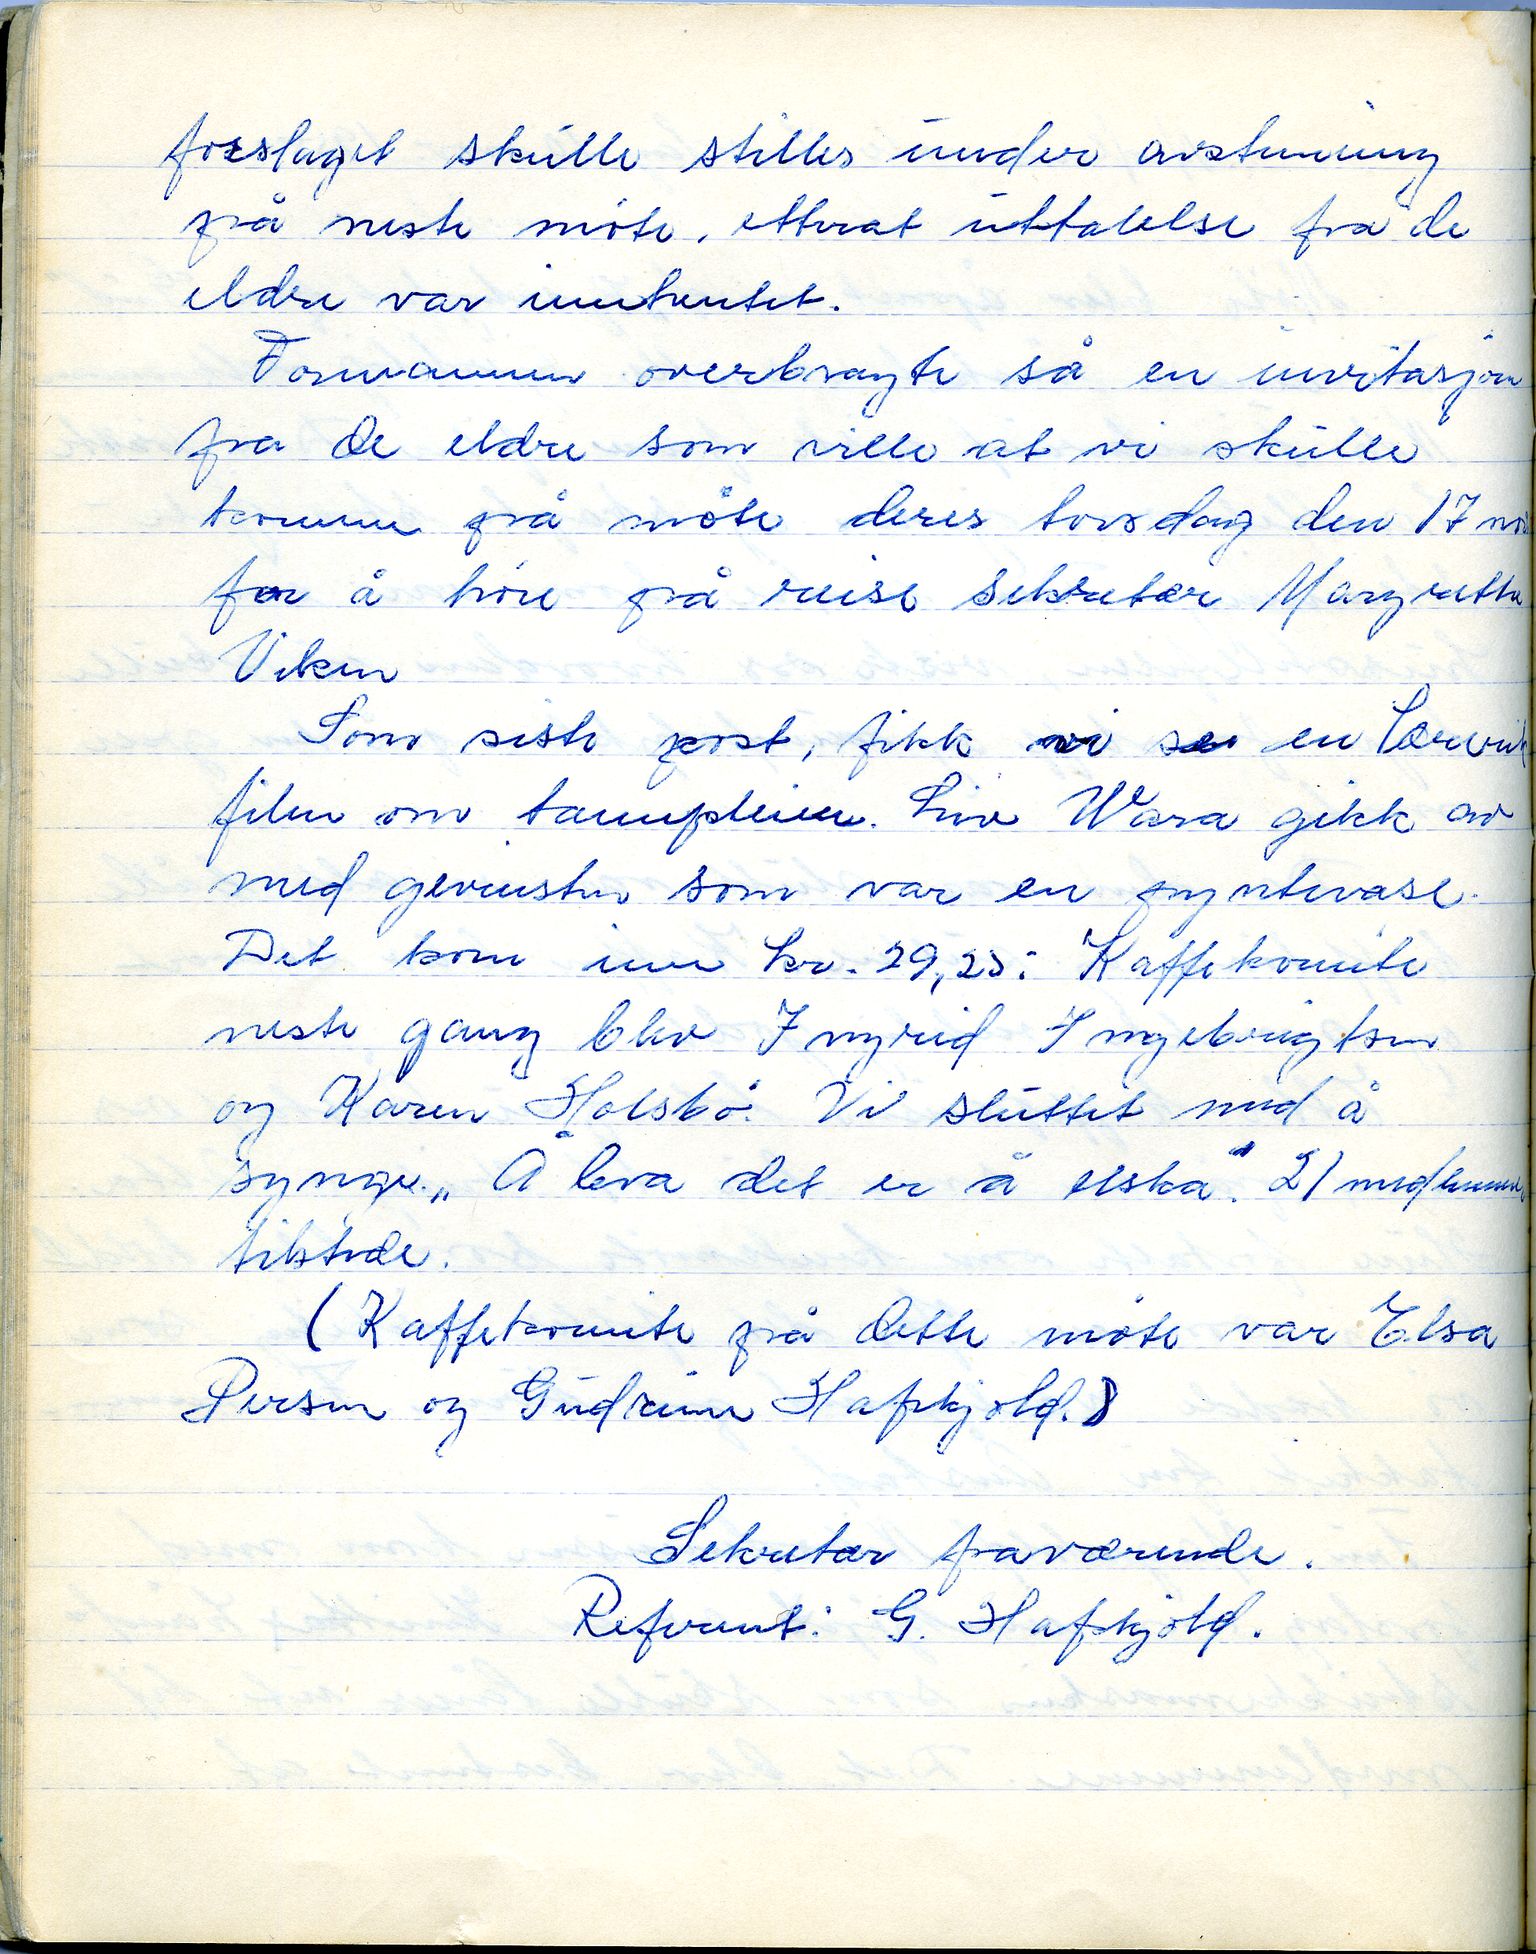 forslaget skulle stilles under avstemning
på neste møte, etterat uttalelse fra de
eldre var innhentet.
Formannen overbragte så en invitasjon
fra de eldre som ville at vi skulle
komme på møte deres torsdag den 17 nov
for å høre på reise sekretær Margrethe
Viken
Som siste post, fikk vi se en lærerik
film om tannpleien. Liv Wara gikk av
med gevinsten som var en pyntevase.
Det kom inn kr. 29,25. Kaffekomite
neste gang blev Ingrid Ingebrigtsen
og Karen Holsbö. Vi sluttet med å
synge „Å leva det er å elska". 21 medlemmer
tilstede.
(Kaffekomite på dette møte var Elsa
Persen og Gudrunn Hafskjold.)
Sekretær fraværende.
Referent: G. Hafskjold.